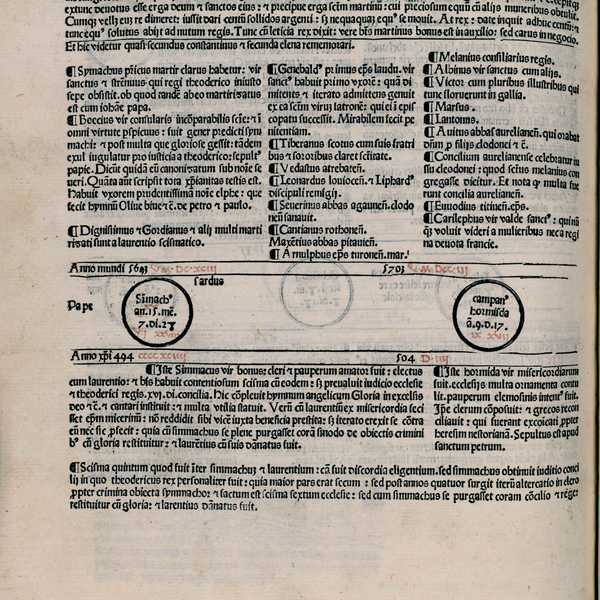 extunc deuotus esse erga deum ⁊ sanctos eius: ⁊ precipue erga sctm martinū: cui preciosum equū cū alijs muneribus obtulit.
Cumq; vellꝫ euꝫ re dimeret: iussit dari centū sollidos argenti: sꝫ nequaquaꝫ equꝰ se mouit. At rex: date inquit adhuc centū: ⁊
tunc equꝰ solutus abijt ad nutum regis. Tunc cū leticia rex dixit: vere btūs martinus bonus est in auxilio: sed carus in negocio.
Et hic videtur quasi secundus constantinus ⁊ secunda elena rememorari.
¶ Symachus pricus martir clarus habetur: vir
sanctus ⁊ strenuus qui regi theoderico iniusto
sepe obstitit. ob quod tandē ab eo martirizatus
est cum iohāne papa.
¶ Boecius vir consularis incōparabilis sciē: ⁊ ī
omni virtute pspicuus: fuit gener predicti sym
machi: ⁊ post multa que gloriose gessit: tādem
exul iugulatur pro iusticia a theoderico: sepultꝰ
papie. Dicūt quidā eū canonizatum sub noīe se
ueri. Quāta aūt scripsit tota xpianitas testis est.
Habuit vxorem prudentissimā noīe elphe: que
fecit hymnū Oliue biue ⁊ cē. de petro ⁊ paulo.
¶ Dignissimus ⁊ Gordianus ⁊ alij multi marti
rizati sunt a laurentio scismatico.
¶ Genebaldꝰ primus epūs laudu. vir
sanctꝰ habuit primo vxorē: quā di
mittens ⁊ iterato admittens genuit
ex ea scām viruꝫ latronē: qui ei ī epi
scopatu successit. Mirabilem fecit pe
nitentiam.
¶ Tiberanus scotus cum suis fratri
bus ⁊ sororibus claret sctitate.
¶ Vedastus atrebateñ.
¶ Leonardus louioceñ. ⁊ Liphardꝰ
discipuli remigij.
¶ Seuerinus abbas agauneñ. clodo
neū sanauit.
¶ Cantianus rothoneñ.
Maxētius abbas pitauieñ.
¶ Arnulphus epūs turoneñ. marꝰ.
¶ Melanius consiliarius regis.
¶ Albinus vir sanctus cum alijs.
¶ Victor cum pluribus illustribus qui
tunc floruerunt in gallia.
¶ Marsus.
¶ Lantomus.
¶ Auitus abbas aurelianeñ. qui orabat
dñum p filijs clodonei ⁊ cē.
¶ Concilium aurelianense celebratur iu
ssu clodonei: quod sctus melanius con
gregasse dicitur. Et nota ꝙ multa fue
runt concilia aurelianeñ.
¶ Euuodius titineñ. epūs.
¶ Carilephus vir valde sanctꝰ: qui nū
qꝫ voluit videri a mulieribus nec a regi
na deuota francie.
Anno mundi 5693 5703
sardus
Pape
Simachꝰ
an. 15. mē.
7. di. 27
campanꝰ
hormisda
ā. 9. d. 17.
Anno xpi 494 504
¶ Iste Simmacus vir bonus: cleri ⁊ pauperum amator fuit: electus
cum laurentio: ⁊ bis habuit contentiosum scisma cū eodem: sꝫ preualuit iudicio ecclesie
⁊ theoderici regis. xvj. di. concilia. Hic cōpleuit hymnum angelicum Gloria in excelsis
deo ⁊ cē. ⁊ cantari instituit: ⁊ multa vtilia statuit. Verū cū laurentiuꝫ ex misericordia feci
sset epm nicerinū: non reddidit sibi vicē iuxta beneficia prestita: sꝫ iterato erexit se cōtra
eū nec sic pfecit: quia cum simmachus se plene purgasset coram sinodo de obiectis crimini
bꝰ cū gloria restituitur: ⁊ laurētius cū suis dānatus fuit.
¶ Iste hormida vir misericordiarum
fuit. ecclesijs multa ornamenta contu
lit. pauperum elemosinis intentꝰ fuit.
Ipse clerum cōposuit: ⁊ grecos recon
ciliauit: qui fuerant excoīcati, ppter
heresim nestorianā. Sepultus est apud
sanctum petrum.
¶ Scisma quintum quod fuit īter simmachuꝫ ⁊ laurentium: cā fuit discordia eligentium. sed simmachus obtinuit iudicio conci
lij in quo theodericus rex personaliter fuit: quia maior pars erat secum: sed post annos quatuor surgit iterū altercatio in clero
, ppter crimina obiecta symmacho: ⁊ factum est scisma sextum ecclesie: sed cum simmachus se purgasset coram cōcilio ⁊ rege:
restituitur cū gloria: ⁊ larentius dānatus fuit.